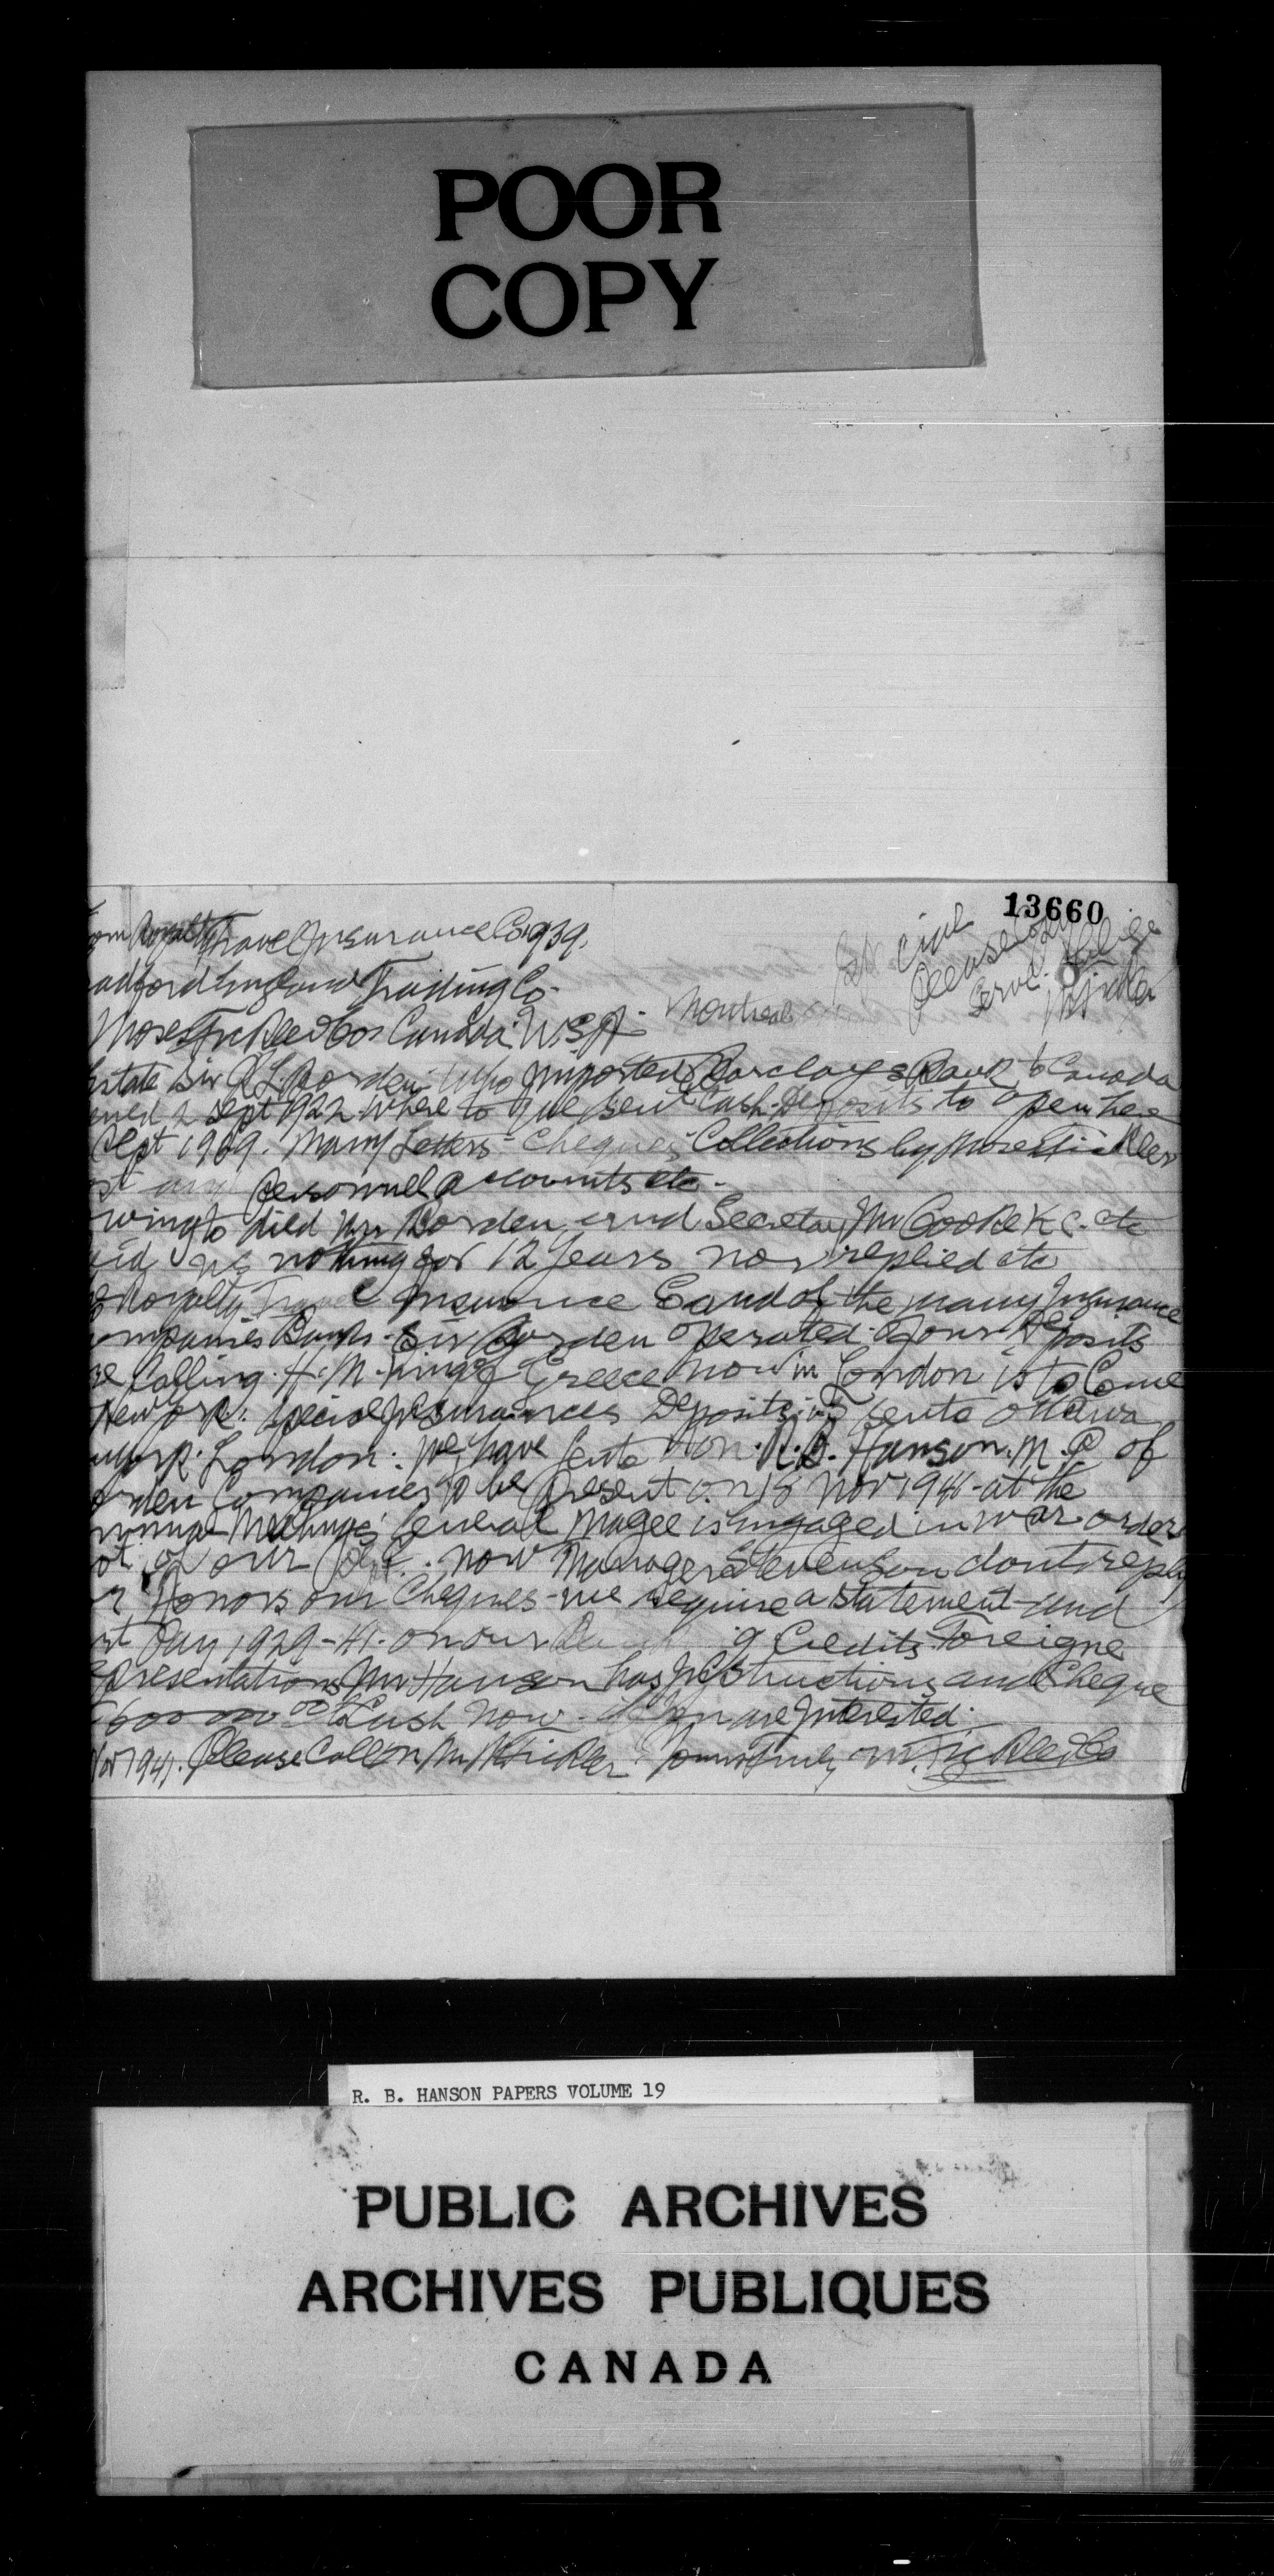 POOR
COPY
13660
Civil
Please
Travel Insurance Co 1939.
England Trading Co-
Moses Co Canada U.S.A- Montreal
Estate Sir R L Borden who Imported Barclays Bank to Canada
2 Sept 1922 where to we sent Cash Deposits to open here
Sept 1929. Many Letters - Cheques Collections by Moses
any Personnel accounts etc-
to died Mr Borden and Secretary Mr Cooke K.C. etc
us nothing for 12 Years nor replied etc
Royalty Travel Insurance and of the many Insurance
Banks - Sir Borden operated of our Deposits
Calling. H.M. King of Greece now in London is to Come
New York. special Insurances Deposits is sent Ottawa
York. London. We have sent Hon. R.B. Hanson. M.P. of
Companies to be Present on 18 Nov 1941 - at the
Meetings General Magee is Engaged in war orders
of our now Manager Stevenson dont reply
or Honors our Cheques - we require a Statement - and
Pay 1929-41. on our Credits Foreigne
Mr Hanson has Instructions and Cheque
Cash Now - if You are Interested.
Nov 1941. Please Call on Mr Yours Truly M. Co
R. B. HANSON PAPERS VOLUME 19
PUBLIC ARCHIVES
ARCHIVES PUBLIQUES
CANADA